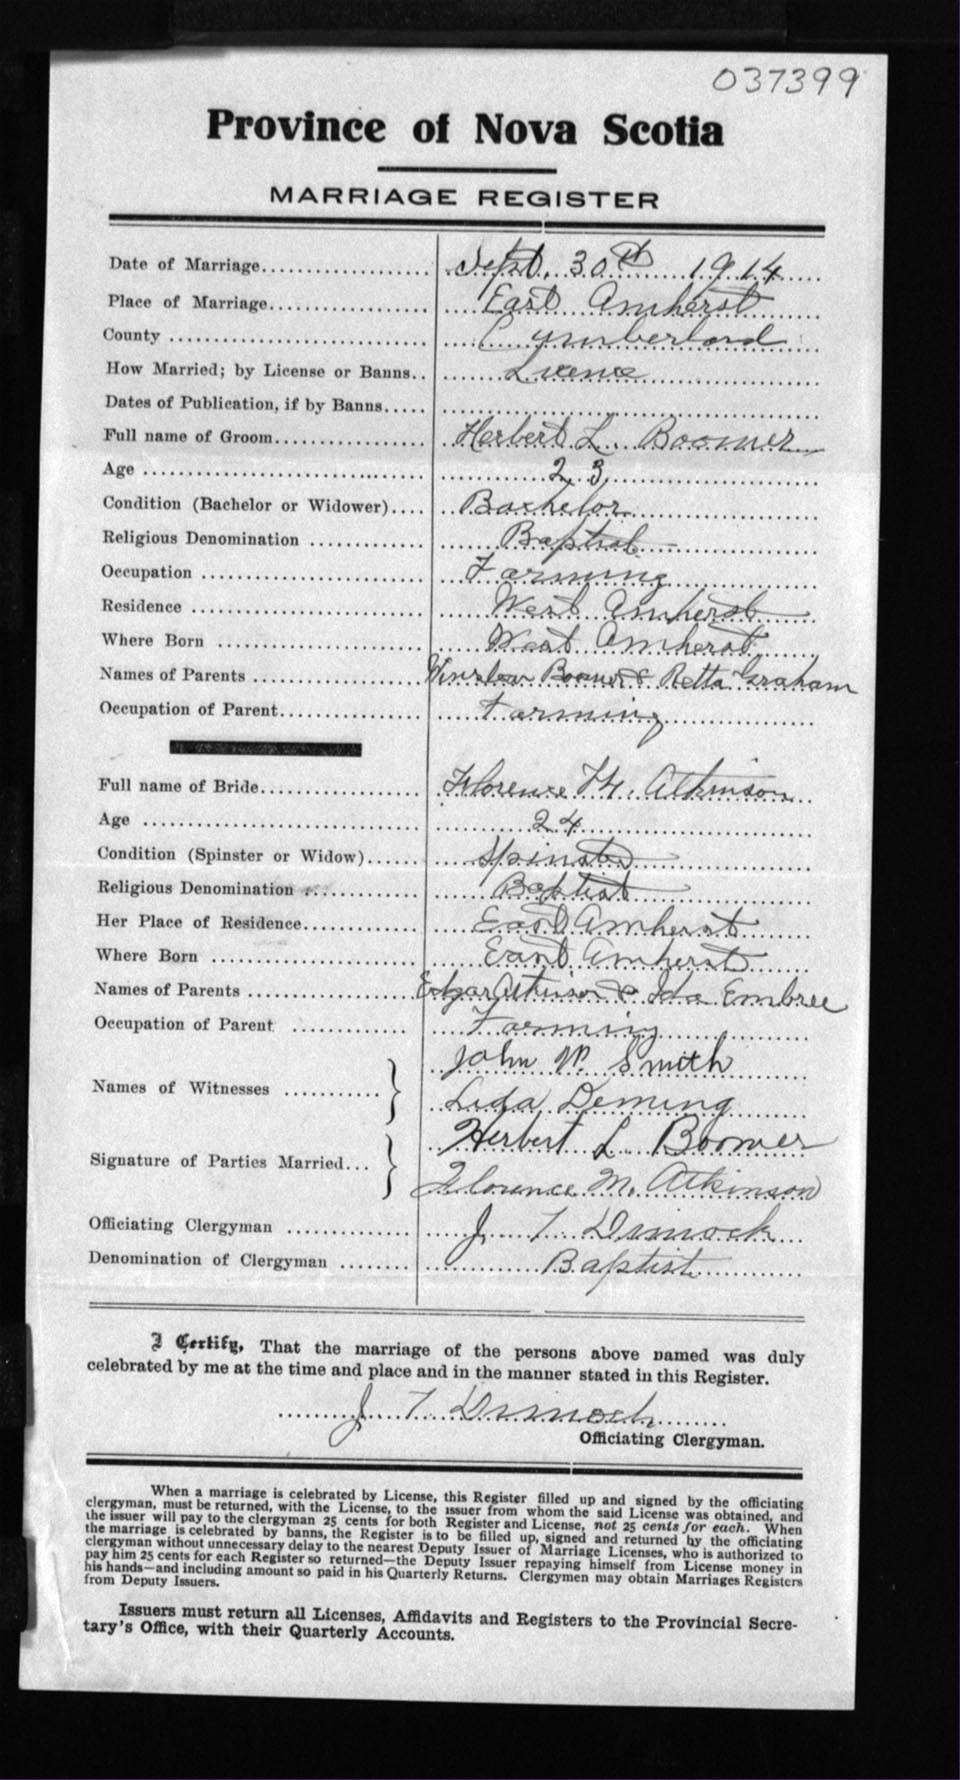 037399
Province of Nova Scotia
MARRIAGE REGISTER
Date of Marriage Sept. 30th 1914
Place of Marriage East Amherst
County Cumberland
How Married; by License or Banns Licence
Dates of Publication, if by Banns
Full name of Groom Herbert L. Boomer
Age 23
Condition (Bachelor or Widower) Bachelor
Religious Denomination Baptist
Occupation Farming
Residence West Amherst
Where Born West Amherst
Names of Parents Winslow Boomer & Retta Graham
Occupation of Parent Farming
Full name of Bride Florence M. Atkinson
Age 24
Condition (Spinster or Widow) Spinster
Religious Denomination Baptist
Her Place of Residence East Amherst
Where Born East Amherst
Names of Parents Edgar Atkinson & Ida Embree
Occupation of Parent Farming
Names of Witnesses John W. Smith
Lida Deming
Signature of Parties Married Herbert L. Boomer
Florence M. Atkinson
Officiating Clergyman J. T. Dimock
Denomination of Clergyman Baptist
I Certify, That the marriage of the persons above named was duly
celebrated by me at the time and place and in the manner stated in this Register.
J T Dimock
Officiating Clergyman.
When a marriage is celebrated by License, this Register filled up and signed by the officiating
clergyman, must be returned, with the License, to the issuer from whom the said License was obtained, and
the issuer will pay to the clergyman 25 cents for both Register and License, not 25 cents for each. When
the marriage is celebrated by banns, the Register is to be filled up, signed and returned by the officiating
clergyman without unnecessary delay to the nearest Deputy Issuer of Marriage Licenses, who is authorized to
pay him 25 cents for each Register so returned—the Deputy Issuer repaying himself from License money in
his hands—and including amount so paid in his Quarterly Returns. Clergymen may obtain Marriages Registers
from Deputy Issuers.
Issuers must return all Licenses, Affidavits and Registers to the Provincial Secre-
tary's Office, with their Quarterly Accounts.